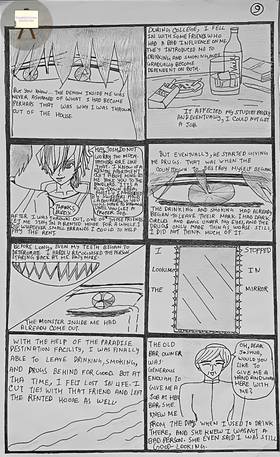 9
BUT YOU KNOW... THE DEMON INSIDE ME WAS
NEVER ASHAMED OF WHAT I HAD BECOME
PERHAPS THAT WAS WHY I WAS THROWN
OUT OF THE HOUSE
DURING COLLEGE, I FELL
IN WITH SOME FRIENDS WHO
HAD A BAD INFLUENCE ON ME.
THEY INTRODUCED ME TO
DRINKING, AND SMOKING, AND
I GRADUALLY BECAME
DEPENDENT ON BOTH.
IT AFFECTED MY STUDIES BADLY
AND EVENTUALLY, I COULD NOT GET
A JOB.
HEY, JOSH, DO NOT
WORRY TOO MUCH.
THINGS ARE LIKE
THAT.
THANKS,
AFTER I WAS THROWN OUT, ONE OF THESE FRIENDS
LET ME STAY IN A RENTED HOUSE FOR A WHILE. I
DID WHATEVER SMALL ERRANDS I COULD TO HELP
PAY THE RENT.
BUT EVENTUALLY, HE STARTED GIVING
ME DRUGS. THAT WAS WHEN THE
COUNTDOWN TO DESTROY MYSELF BEGAN
THE DRINKING AND SMOKING HAD ALREADY
BEGUN TO LEAVE THEIR MARK. I HAD DARK
CIRCLES AND BAGS UNDER MY EYES, AND THE
DRUGS ONLY MADE THINGS WORSE. STILL,
I DID NOT THINK MUCH OF IT.
BEFORE LONG, EVEN MY TEETH BEGAN TO
DETERIORATE. I HARDLY RECOGNISED THE PERSON
STARING BACK AT ME ANYMORE.
THE MONSTER INSIDE ME HAD
ALREADY COME OUT.
I STOPPED
LOOKING IN
THE MIRROR
WITH THE HELP OF THE PARADISE
DESTINATION FACILITY, I WAS FINALLY
ABLE TO LEAVE DRINKING, SMOKING,
AND DRUGS BEHIND FOR GOOD. BUT AT
THA TIME, I FELT LOST IN LIFE. I
CUT TIES WITH THAT FRIEND AND LEFT
THE RENTED HOUSE AS WELL
THE OLD
BAR OWNER
WAS
GENEROUS
ENOUGH TO
GIVE ME A
JOB AT HER
BAR. SHE
KNEW ME
FROM THE DAYS WHEN I USED TO DRINK
THERE, AND SHE KNEW I WASN'T A
BAD PERSON. SHE EVEN SAID I WAS STILL
GOOD-LOOKING.
OH, DEAR
JOSHUA,
WOULD YOU
LIKE TO
GIVE ME A
HAND WORKING
HERE WITH
ME?